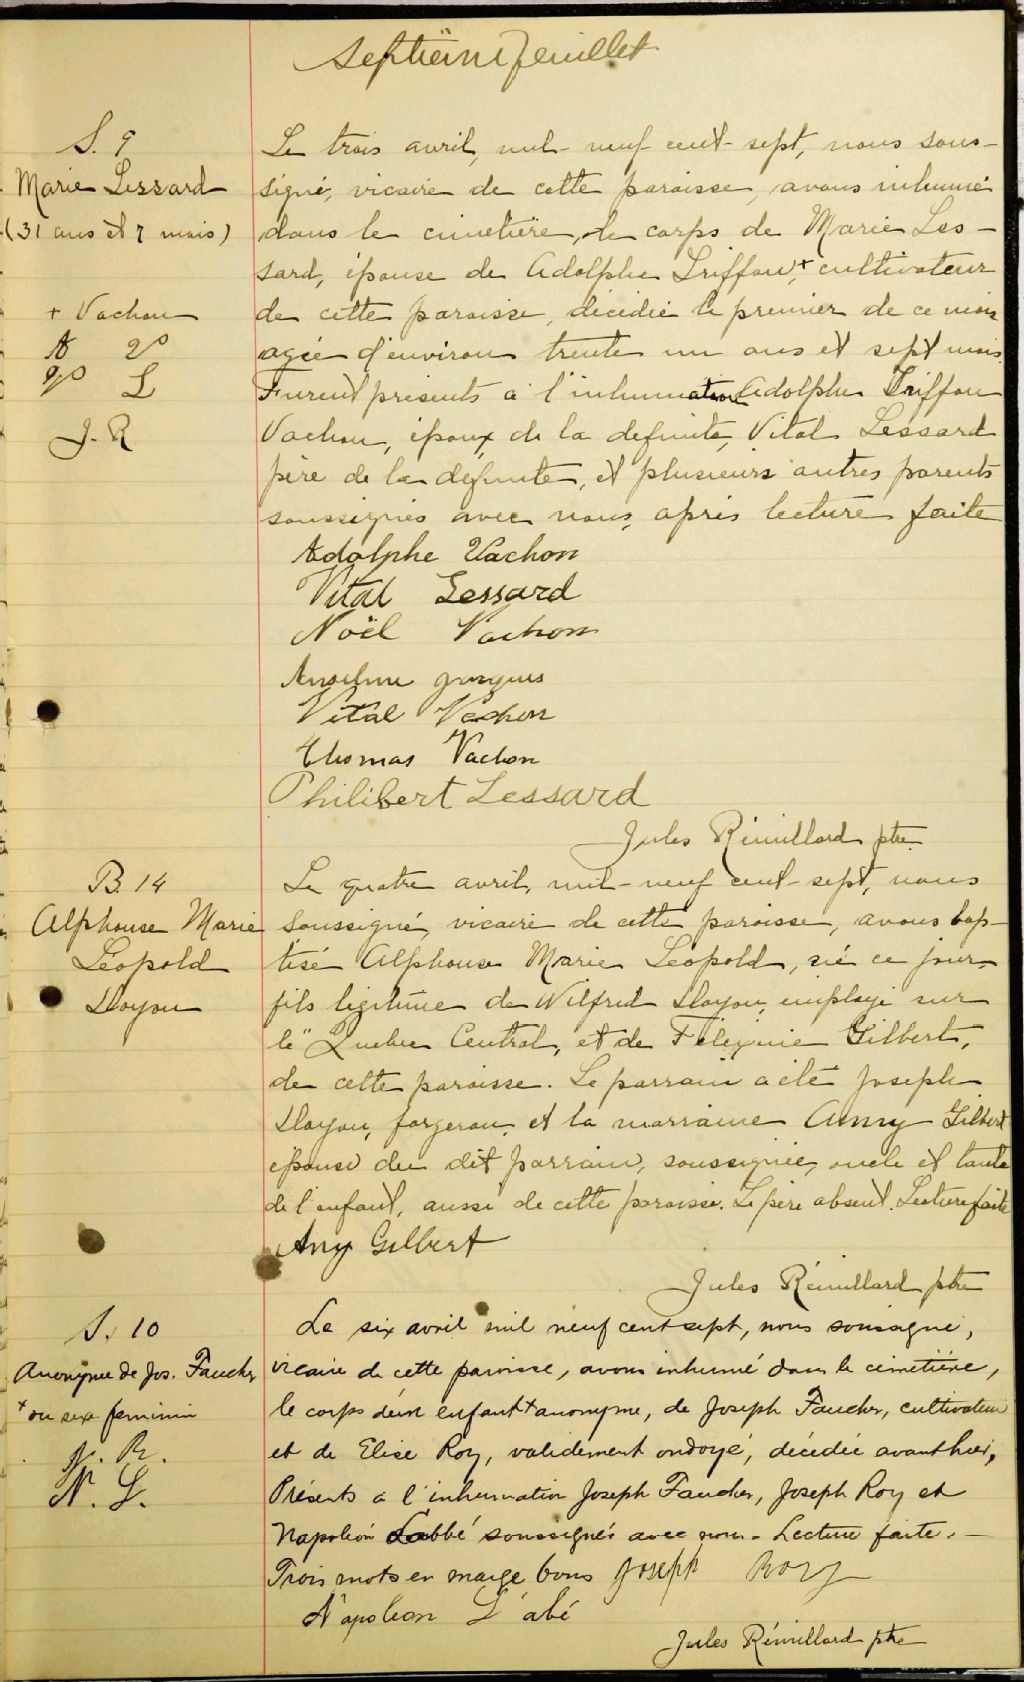 Septième feuillet
S. 9
Marie Lessard
(31 ans et 7 mois)
+ Vachon
J. R
Le trois avril, mil-neuf cent-sept, nous sous-
signé, vicaire de cette paroisse, avons inhumé
dans le cimetière, le corps de Marie Les-
sard, épouse de Adolphe Triffou,+ cultivateur
de cette paroisse, décédée le premier de ce mois
agée d'environ trente un ans et sept mois.
Furent présents à l'inhumation Adolphe Triffou
Vachon, époux de la defunte, Vital Lessard
père de la defunte, et plusieurs autres parents
soussignés avec nous, après lecture faite
Adolphe Vachon
Vital Lessard
Noël Vachon
Anselme
Vital Vachon
Thomas Vachon
Philibert Lessard
Jules Rémillard ptre.
B. 14
Alphonse Marie
Léopold
Doyon
Le quatre avril, mil-neuf cent-sept, nous
soussigné, vicaire de cette paroisse, avons bap-
tisé Alphonse Marie Léopold, né ce jour,
fils légitime de Wilfrid Doyon, employé sur
le "Quebec Central, et de Gilbert,
de cette paroisse. Le parrain a été Joseph
Doyon, forgeron, et la marraine Anny Gilbert
épouse du dit parrain, soussignée, oncle et tante
de l'enfant, aussi de cette paroisse. Le père absent. Lecture faite
Any Gilbert
Jules Rémillard ptre
S. 10
Anonyme de Jos. Faucher
+ du sexe feminin
J. R.
N. L.
Le six avril mil neuf cent sept, nous soussigné,
vicaire de cette paroisse, avons inhumé dans le cimetière,
le corps d'un enfant+ anonyme, de Joseph Faucher, cultivateur
et de Elise Roy, validement ondoyé, décédée avant hier,
Présents à l'inhumation Joseph Faucher, Joseph Roy et
Napoléon Labbé soussignés avec nous. Lecture faite. —
Trois mots en marge bons Joseph Roy
Napoleon L'abé
Jules Rémillard ptre